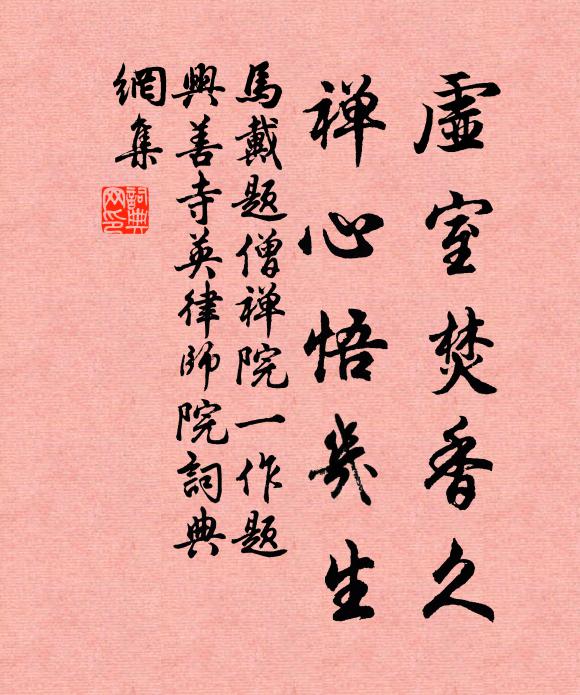 虛室焚香久
禅心悟幾生
馬戴題僧禅院一作題
興善寺英律師院詞典
網集
詞典网印